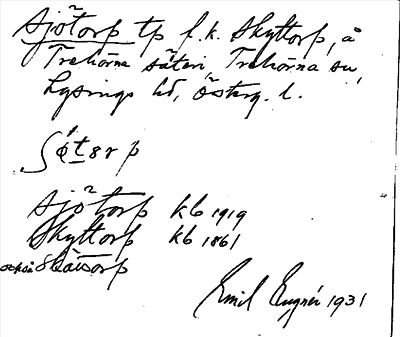 Sjötorp tp f. k. Skyttorp, å
Trehörna säteri Trehörna sn,
Lysings hd, Österg. l.
ʃǿt8rp
Sjötorp kb 1919
Skyttorp kb 1861
också Skåtorp
Emil 1931